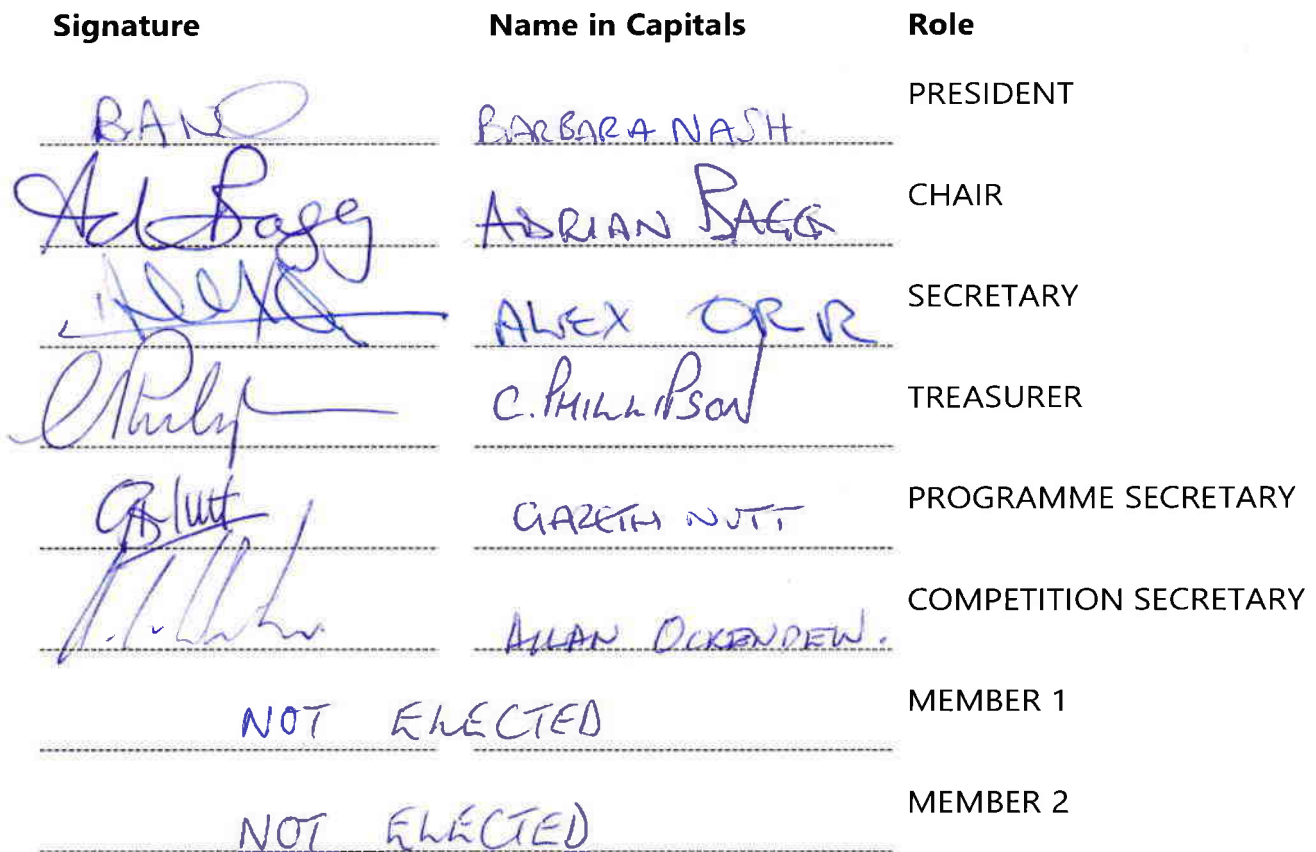 Signature Name in Capitals Role
BAN BARBARA NASH. PRESIDENT
Ad Bagg ADRIAN BAGG CHAIR
ALEX ORR SECRETARY
C. PHILLIPSON TREASURER
GARETH NUTT PROGRAMME SECRETARY
ALLAN OCKENDEN. COMPETITION SECRETARY
NOT ELECTED MEMBER 1
NOT ELECTED MEMBER 2